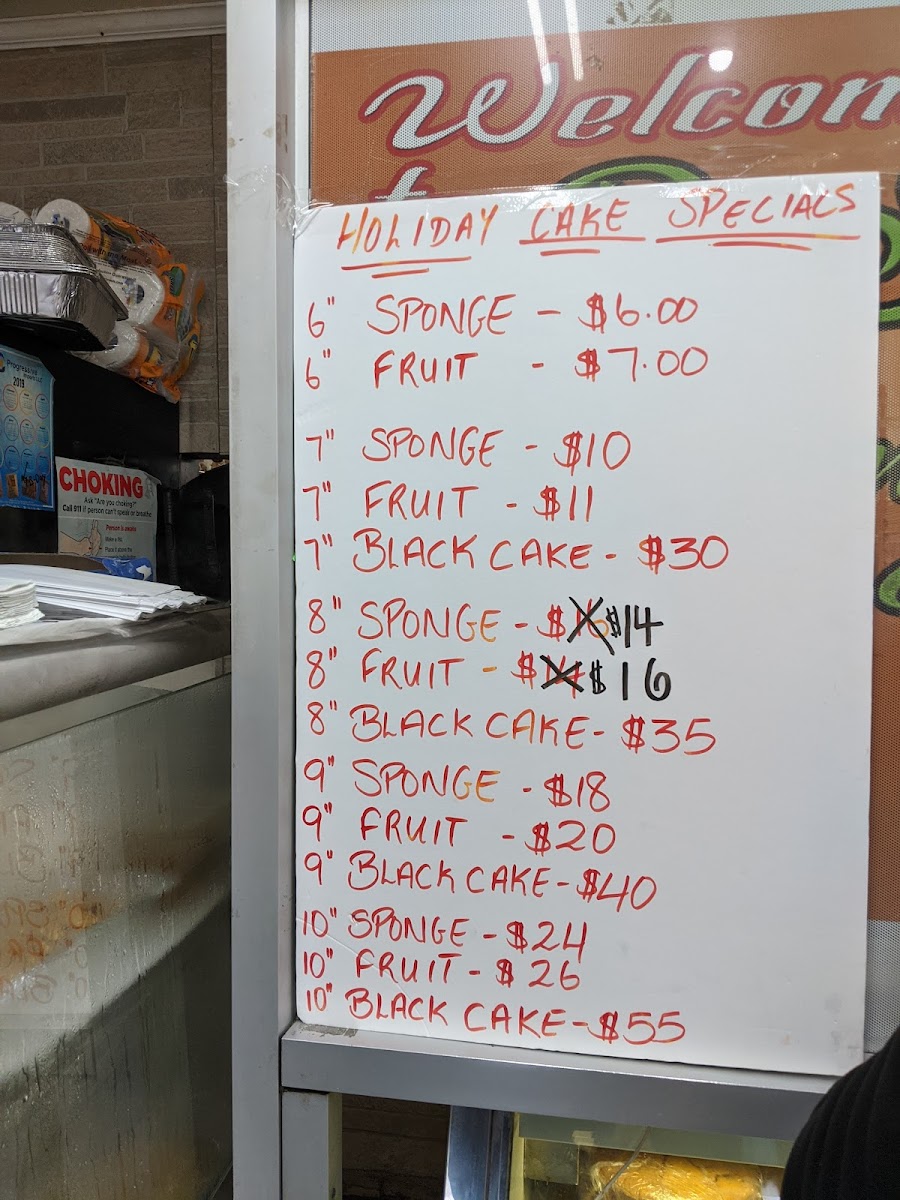 Welcom
HOLIDAY CAKE SPECIALS
6" SPONGE - $6.00
6" FRUIT - $7.00
7" SPONGE - $10
7" FRUIT - $11
7" BLACK CAKE - $30
8" SPONGE - $16 $14
8" FRUIT - $14 $16
8" BLACK CAKE - $35
9" SPONGE - $18
9" FRUIT - $20
9" BLACK CAKE - $40
10" SPONGE - $24
10" FRUIT - $26
10" BLACK CAKE - $55
2019
CHOKING
Ask "Are you choking?"
Call 911 if person can't speak or breathe
Person is awake